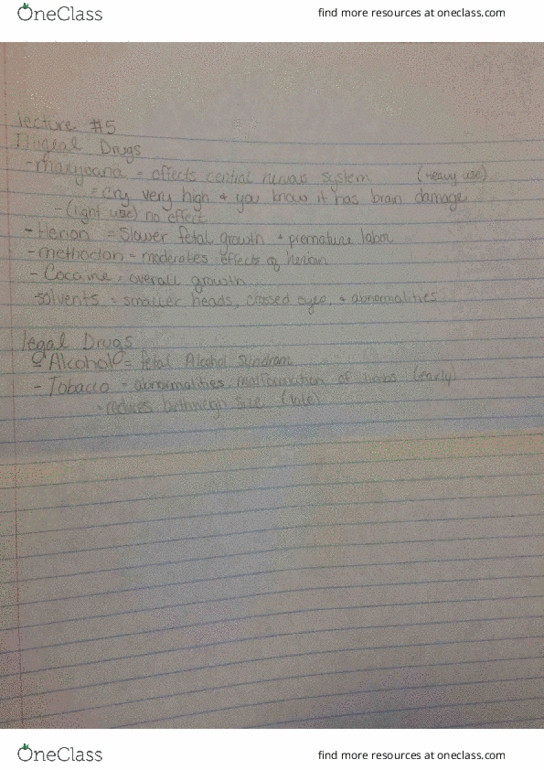 OneClass
find more resources at oneclass.com
lecture #5
Drugs
- marijuana = effects central nervous system (heavy use)
= cry very high + you know it has brain damage
- (light use) no effect
- Herion = Slower fetal growth + premature labor
- methodon = moderates effects of heroin
- Cocaine = overall growth
solvents = smaller heads, crossed eyes, + abnormalities
legal Drugs
Alcohol = fetal Alcohol Syndrom
- Tobacco = abnormalities, malformation of limbs (early)
- reduces size (late)
OneClass
find more resources at oneclass.com